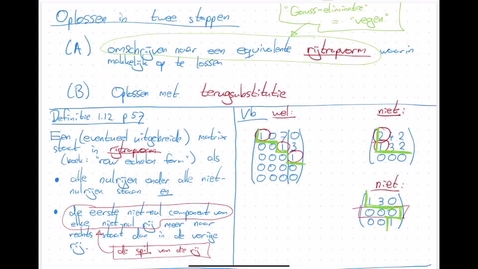 Oplossen in twee stappen
"Gauss-eliminatie"
= "vegen"
(A) omschrijven naar een equivalente rijtrapvorm waarin
makkelijk op te lossen
(B) Oplossen met terugsubstitutie
Definitie 1.12 p 57
Een (eventueel uitgebreide) matrix
staat in rijtrapvorm
(boek: 'row echelon form') als
• alle nulrijen onder alle niet-
nulrijen staan en
• de eerste niet-nul component van
elke niet-nul rij meer naar
rechts staat dan in de vorige
rij.
de spil van de rij
Vb wel:
1 0 7 0
0 0 1 3
0 0 0 1
0 0 0 0
0 0 0 0
niet:
4 2
1 3 2
0 0 0
niet:
1 3 0
0 0 0
0 0 1